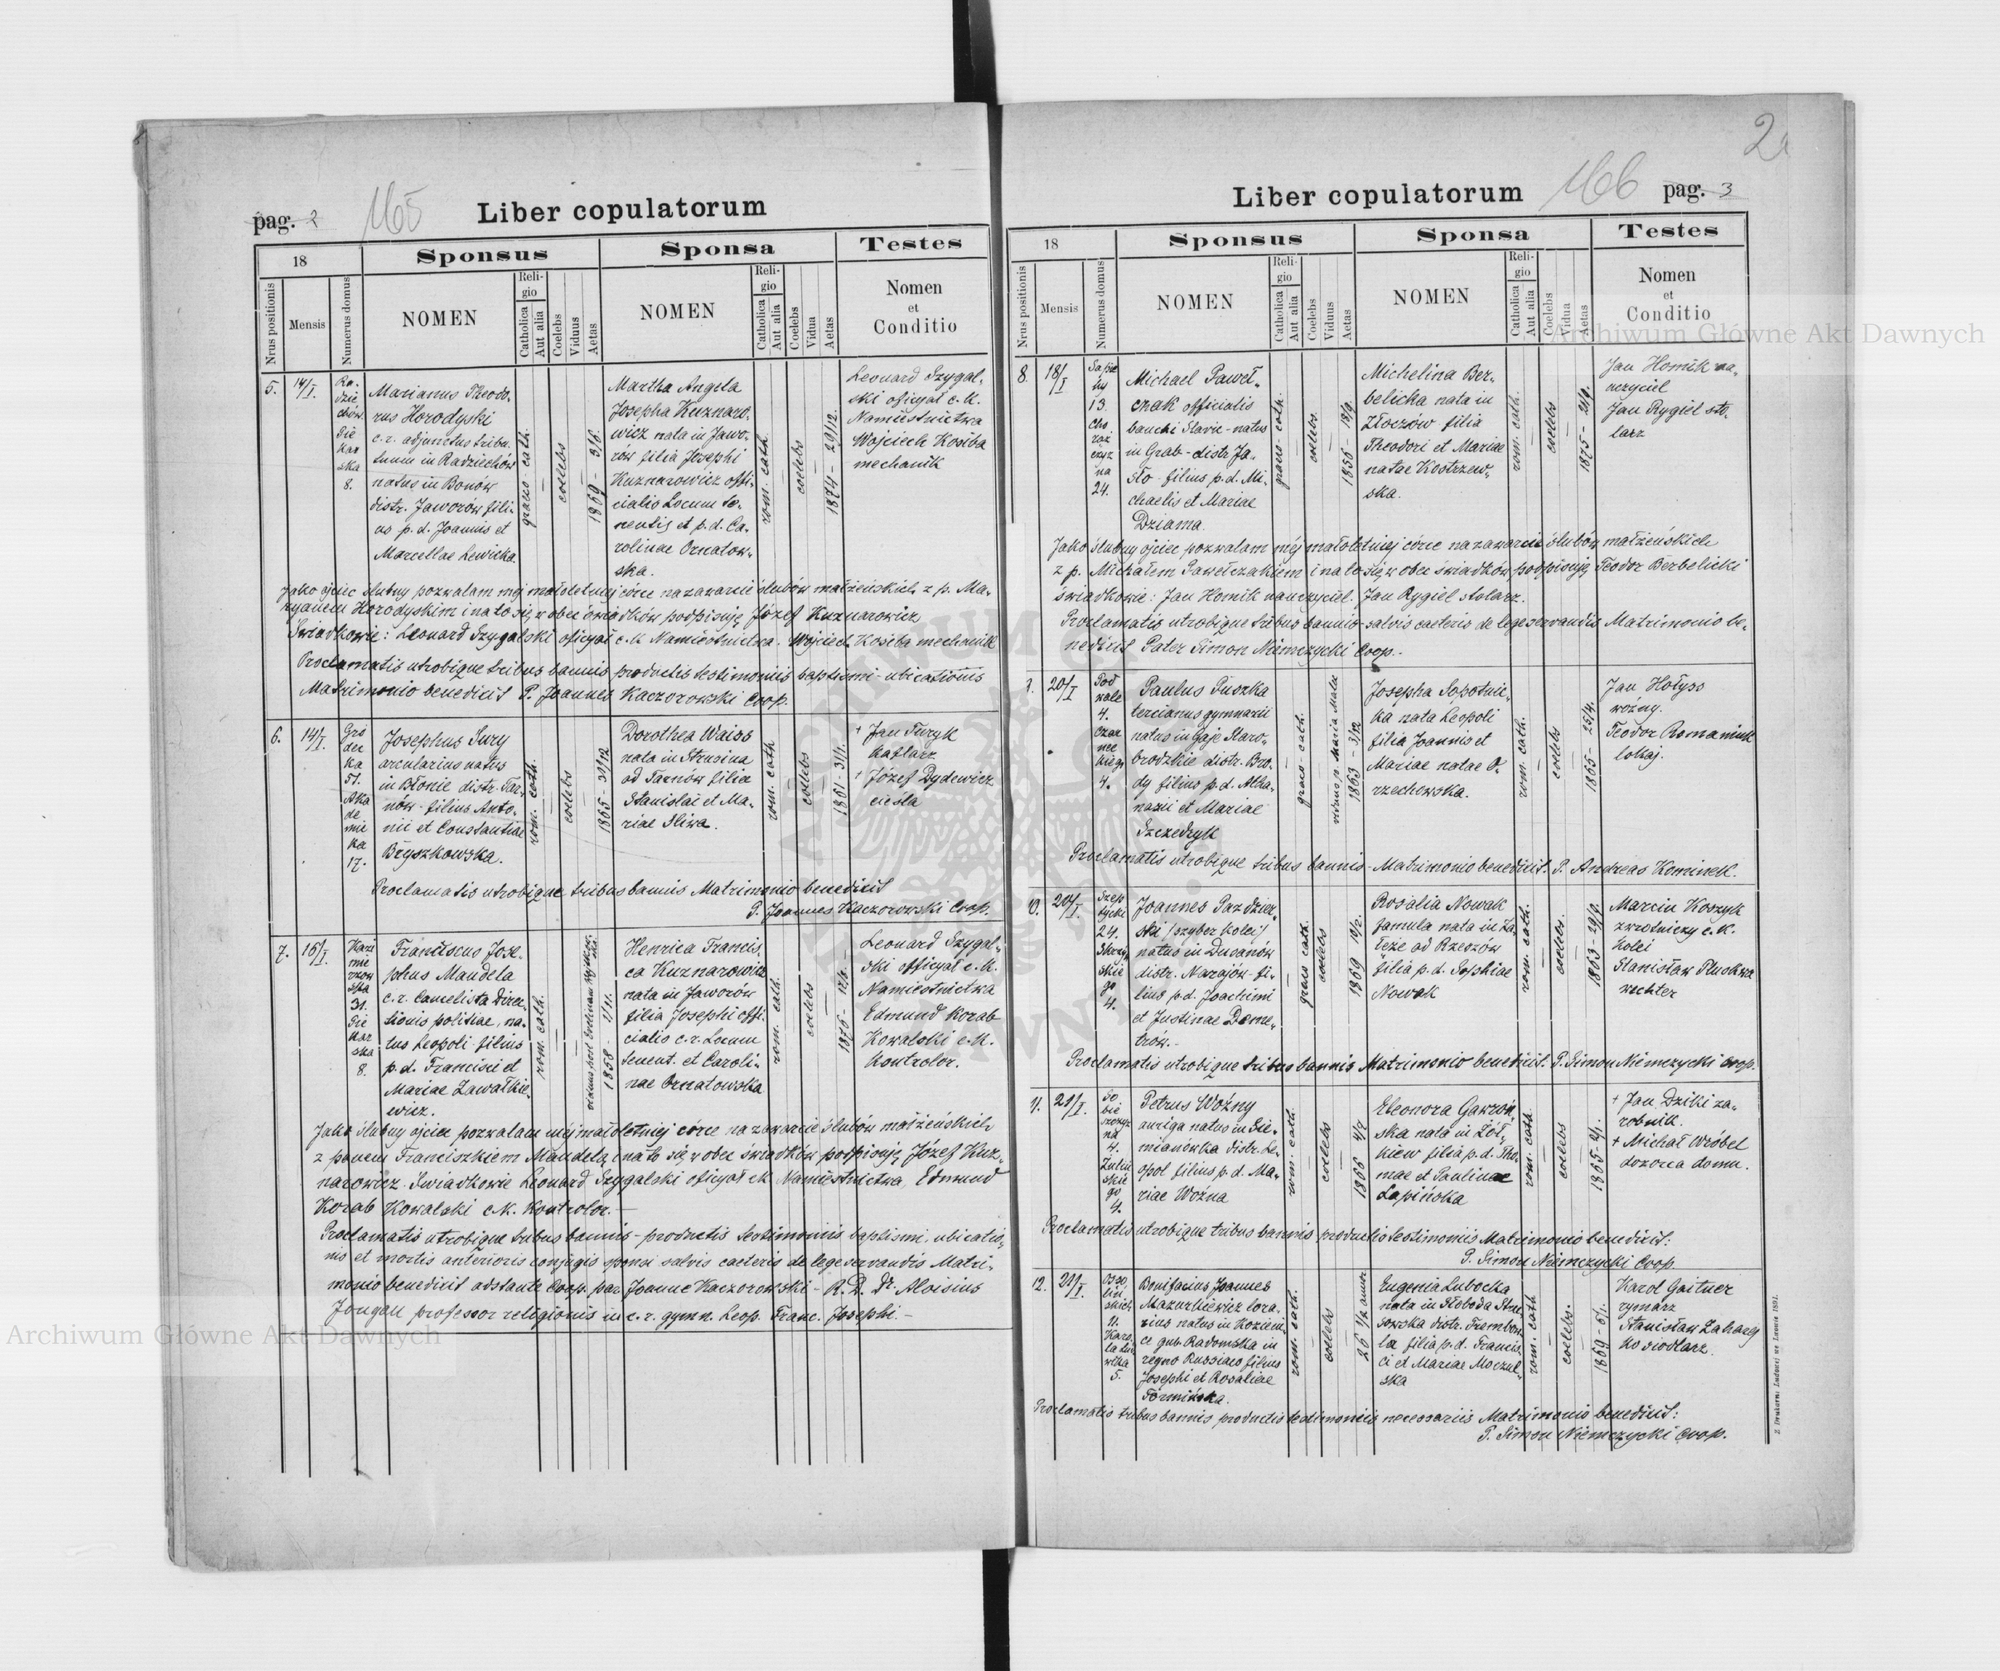 pag. 2
165
Liber copulatorum
18
Sponsus
Sponsa
Testes
Nrus positionis
Mensis
Numerus domus
NOMEN
Reli-
gio
Catholica
Aut alia
Coelebs
Viduus
Aetas
NOMEN
Reli-
gio
Catholica
Aut alia
Coelebs
Vidua
Aetas
Nomen
et
Conditio
5.
14/I.
Ra-
dzie-
chów
Pie
kar
ska
8.
Marianus Theodo-
rus Horodyski
c. r. adjunctus tribu-
tuum in Radziechów
natus in Bonów
distr. Jaworów fili-
us p. d. Joannis et
Marcellae Lewicka.
graeco - cath.
coelebs
1869 - 3/6.
Martha Angela
Josepha Kuznaro-
wicz nata in Jawo-
rów filia Josephi
Kuznarowicz offi-
cialis Locum te-
nentis et p. d. Ca-
rolinae Ornatow-
ska.
rom. cath.
coelebs
1874 - 29/12.
Leonard Szygal-
ski oficyał c. k.
Namiestnictwa
Wojciech Kosiba
mechanik
Jako ojciec ślubny pozwalam mej małoletniej córce na zawarcie ślubów małżeńskich z p. Ma-
ryanem Horodyskim i na to się w obec świadków podpisuję Józef Kuznarowicz
Świadkowie: Leonard Szygalski oficyał c. k. Namiestnictwa. Wojciech Kosiba mechanik
Proclamatis utrobique tribus bannis productis testimoniis baptismi - ubicationis
Matrimonio benedixit P. Joannes Kaczorowski Coop.
6.
14/I.
Gró
dec
ka
51.
Aka
de
mic
ka
17.
Josephus Jury
arcularius natus
in Błonie distr. Tar-
nów - filius Anto-
nii et Constantiae
Bryszkowska.
rom. cath.
coelebs
1865 - 31/12
Dorothea Waiss
nata in Strusina
ad Tarnów filia
Stanislai et Ma-
riae Śliwa.
rom. cath
coelebs
1861 - 31/1.
+ Jan Turyk
kaflarz
+ Józef Dydewicz
cieśla
Proclamatis utrobique tribus bannis Matrimonio benedixit
P. Joannes Kaczorowski Coop.
7.
16/I.
Kazi
mie
rzow
ska
31.
Pie
kar
ska
8.
Franciscus Jose-
phus Mandela
c. r. Cancelista Direc-
tionis politiae, na-
tus Leopoli filius
p. d. Francisci et
Mariae Zawałkie-
wicz.
rom. cath.
1858 - 1/11.
Henrica Francis-
ca Kuznarowicz
nata in Jaworów
filia Josephi offi-
cialis c. r. Locum
tenent. et Caroli-
nae Ornatowska
rom. cath.
coelebs
1876 - 12/6.
Leonard Szygal-
ski oficyał c. k.
Namiestnictwa
Edmund Korab
Kowalski c. k.
Kontrolor.
Jako ślubny ojciec pozwalam mej małoletniej córce na zawarcie ślubów małżeńskich
z panem Franciszkiem Mandelą i na to się w obec świadków podpisuję Józef Kuz-
narowicz. Świadkowie Leonard Szygalski oficyał ck Namiestnictwa, Edmund
Korab Kowalski c. k. Kontrolor.
Proclamatis utrobique tribus bannis - productis testimoniis baptismi, ubicatio-
nis et mortis anterioris conjugis sponsi salvis caeteris de lege servandis Matri-
monio benedixit adstante Coop. par. Joanne Kaczorowski - R. D. Dr. Aloisius
Jougan professor religionis in c. r. gymn. Leop. Franc. Josephi. -
2
166
Liber copulatorum
pag. 3
18
Sponsus
Sponsa
Testes
Nrus positionis
Mensis
Numerus domus
NOMEN
Reli-
gio
Catholica
Aut alia
Coelebs
Viduus
Aetas
NOMEN
Reli-
gio
Catholica
Aut alia
Coelebs
Vidua
Aetas
Nomen
et
Conditio
8.
18/I
Sapie
hy
13.
Cho
rąż
czyz
na
24.
Michael Paweł-
czak officialis
banchi Slavic - natus
in Grab - distr Ja-
sło - filius p. d. Mi-
chaelis et Mariae
Dziama.
graeco - cath.
coelebs.
1856 - 18/9.
Michelina Ber-
belicka nata in
Złoczów filia
Theodori et Mariae
natae Kostrzew-
ska.
rom. cath.
coelebs
1875 - 21/9.
Jan Homik na-
uczyciel
Jan Rygiel sto-
larz
Jako ślubny ojciec pozwalam mej małoletniej córce na zawarcie ślubów małżeńskich
z p. Michałem Pawełczakiem i na to się w obec świadków podpisuję Teodor Berbelicki
świadkowie: Jan Homik nauczyciel. Jan Rygiel stolarz.
Proclamatis utrobique tribus bannis - salvis caeteris de lege servandis Matrimonio be-
nedixit Pater Simon Niemczycki Coop.-
9.
20/I
Pod
wale
4.
Czar
niec
kiego
4.
Paulus Puszka
tercianus gymnasii
natus in Gaje Staro-
brodzkie distr. Bro-
dy filius p. d. Atha-
nasii et Mariae
Szczedryk
graeco - cath.
viduus p. Maria Mala
1863 - 3/12
Josepha Sopotnic-
ka nata Leopoli
filia Joannis et
Mariae natae O-
rzechowska.
rom. cath.
coelebs
1865 - 25/4.
Jan Hołyss
woźny.
Teodor Romaniuk
lokaj.
Proclamatis utrobique tribus bannis - Matrimonio benedixit. P. Andreas Kominek.
10.
20/I.
Szep
tycki
24.
Skarb
kowskie
go
4.
Joannes Paździer-
ski /szyber kolei/
natus in Dusanów
distr. Narajów - fi-
lius p. d. Joachimi
et Justinae Deme-
trów.-
graeo cath.
coelebs
1869 19/2.
Rosalia Nowak
famula nata in Za-
łęże ad Rzeszów
filia p. d. Sophiae
Nowak
rom. cath.
coelebs.
1863 - 29/9.
Marcin Koszyk
zwrotniczy c. k.
kolei
Stanisław Pluskwa
wechter
Proclamatis utrobique tribus bannis Matrimonio benedixit. P. Simon Niemczycki Coop.
11.
21/I.
So
bie
szczyz
na
4.
Zuliń
skie
go
4.
Petrus Woźny
auriga natus in Sie-
mianówka distr. Le-
opol filius p. d. Ma-
riae Woźna
rom. cath.
coelebs
1866 4/7
Eleonora Gawroń-
ska nata in Żół-
kiew filia p. d. Tho-
mae et Paulinae
Łapińska
rom. cath.
coelebs
1865 - 2/1.
+ Jan Dziki za-
robnik.
+ Michał Wróbel
dozorca domu.
Proclamatis utrobique tribus bannis productis testimoniis Matrimonio benedixit:
P. Simon Niemczycki Coop.
12.
21/I.
Osso
liń
skich
11.
Karo
la Lud
wika
5.
Bonifacius Joannes
Mazurkiewicz lora-
rius natus in Kozieni-
ce gub. Radomska in
regno Russiaco filius
Josephi et Rosaliae
Formińska.
rom. cath.
coelebs
26 1/2 annor
Eugenia Lubecka
nata in Słoboda Stru-
sowska distr. Trembow-
la filia p. d. Francis-
ci et Mariae Moczul-
ska
rom. cath
coelebs.
1869 - 5/1.
Karol Gaitner
rymarz
Stanisław Zaharg
ko siodlarz.
Proclamatis tribus bannis productis testimoniis necessariis Matrimonio benedixit:
P. Simon Niemczycki Coop.
Z Drukarni Ludowej we Lwowie 1891.
Archiwum Główne Akt Dawnych
Archiwum Główne Akt Dawnych